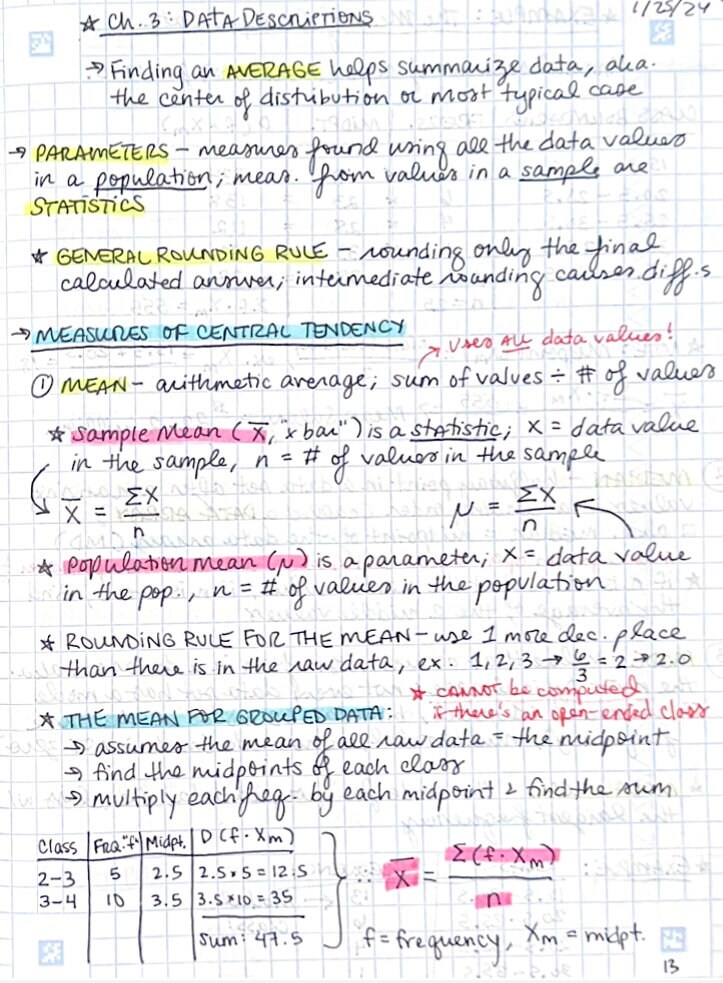 1/25/24
★ Ch. 3: DATA DESCRIPTIONS
→ Finding an AVERAGE helps summarize data, aka.
the center of distribution or most typical case
→ PARAMETERS - measures found using all the data values
in a population; meas. from values in a sample are
STATISTICS
★ GENERAL ROUNDING RULE - rounding only the final
calculated answer; intermediate rounding causes diff.s
→ MEASURES OF CENTRAL TENDENCY
→ uses ALL data values!
① MEAN - arithmetic average; sum of values ÷ # of values
★ Sample Mean (X̅, "x bar") is a statistic; X = data value
in the sample, n = # of values in the sample
X̅ = ΣX/n μ = ΣX/n
★ population mean (μ) is a parameter; X = data value
in the pop., n = # of values in the population
★ ROUNDING RULE FOR THE MEAN - use 1 more dec. place
than there is in the raw data, ex. 1, 2, 3 → 6/3 = 2 → 2.0
★ CANNOT be computed
if there's an open-ended class
★ THE MEAN FOR GROUPED DATA:
→ assumes the mean of all raw data = the midpoint
→ find the midpoints of each class
→ multiply each freq. by each midpoint & find the sum
Class Frq. "f" Midpt. D (f · Xm)
2-3 5 2.5 2.5 × 5 = 12.5
3-4 10 3.5 3.5 × 10 = 35
sum: 47.5
∴ X̅ = Σ(f · Xm)/n
f = frequency, Xm = midpt.
13